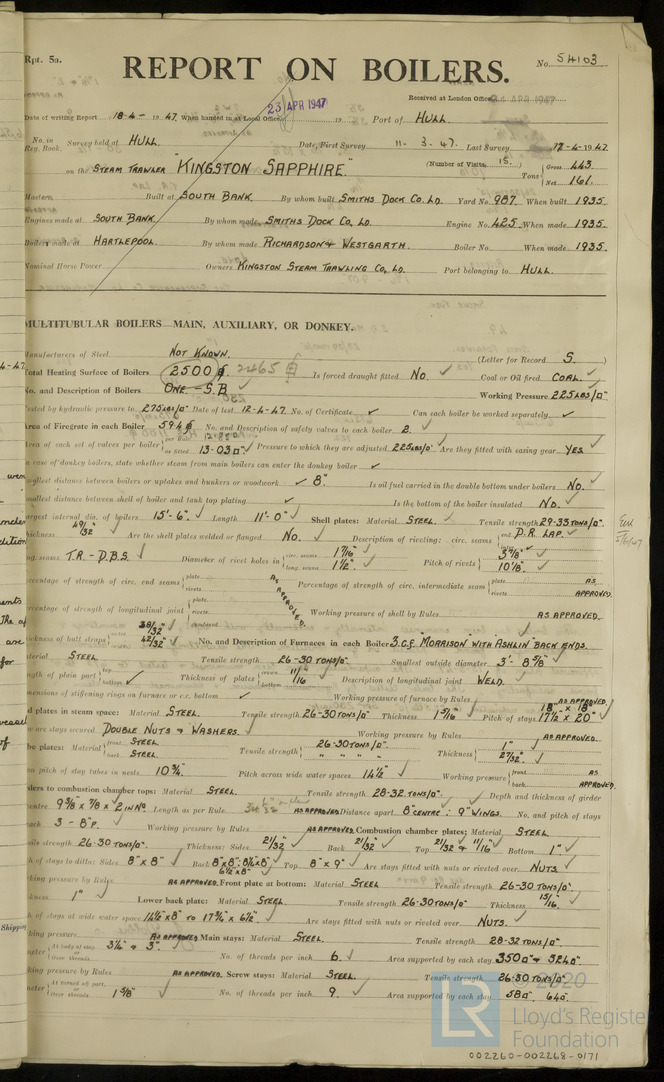 Rpt. 5a.
No. 54103
REPORT ON BOILERS.
Received at London Office 24 APR 1947
23 APR 1947
Date of writing Report 18-4- 1947. When handed in at Local Office 19 Port of HULL.
No. in Reg. Book. Survey held at HULL. Date, First Survey 11-3-47. Last Survey 17-4-1947.
(Number of Visits 15.)
on the STEAM TRAWLER "KINGSTON SAPPHIRE." Tons { Gross 443. Net 161.
Master Built at SOUTH BANK. By whom built SMITHS DOCK CO. LD. Yard No. 987. When built 1935.
Engines made at SOUTH BANK. By whom made SMITHS DOCK CO, LD. Engine No. 425 When made 1935.
Boilers made at HARTLEPOOL. By whom made RICHARDSON & WESTGARTH. Boiler No. When made 1935.
Nominal Horse Power Owners KINGSTON STEAM TRAWLING CO, LD. Port belonging to HULL.
MULTITUBULAR BOILERS—MAIN, AUXILIARY, OR DONKEY.
Manufacturers of Steel NOT KNOWN. (Letter for Record S.)
Total Heating Surface of Boilers 2500 2465 Is forced draught fitted NO. Coal or Oil fired COAL.
No. and Description of Boilers ONE - S.B Working Pressure 225 LBS/□"
Tested by hydraulic pressure to 275 LBS/□" Date of test 12-4-47. No. of Certificate ✓ Can each boiler be worked separately ✓
Area of Firegrate in each Boiler 59.4 No. and Description of safety valves to each boiler 2.
Area of each set of valves per boiler { per Rule as fitted 13.03 □" Pressure to which they are adjusted 225 LBS/□" Are they fitted with easing gear YES.
In case of donkey boilers, state whether steam from main boilers can enter the donkey boiler ✓
Smallest distance between boilers or uptakes and bunkers or woodwork ✓ 8". Is oil fuel carried in the double bottom under boilers NO.
Smallest distance between shell of boiler and tank top plating ✓ Is the bottom of the boiler insulated NO.
Largest internal dia. of boilers 15'-6". Length 11'-0" Shell plates: Material STEEL. Tensile strength 29-33 TONS/□"
Thickness 49/32" Are the shell plates welded or flanged NO. Description of riveting: circ. seams { end D.R LAP.
long. seams T.R.-D.B.S. Diameter of rivet holes in { circ. seams 1 7/16" long. seams 1 1/2" Pitch of rivets { 3 7/8" 10 1/8"
Percentage of strength of circ. end seams { plate rivets AS APPROVED. Percentage of strength of circ. intermediate seam { plate rivets AS APPROVED.
Percentage of strength of longitudinal joint { plate rivets combined Working pressure of shell by Rules AS APPROVED.
Thickness of butt straps { 38/32" 42/32" No. and Description of Furnaces in each Boiler 3.C.F. "MORRISON" WITH ASHLIN BACK ENDS.
Material STEEL Tensile strength 26-30 TONS/□" Smallest outside diameter 3'-8 5/8"
Length of plain part { bottom ✓ Thickness of plates { crown bottom 11/16" Description of longitudinal joint WELD.
Dimensions of stiffening rings on furnace or c.c. bottom ✓ Working pressure of furnace by Rules AS APPROVED
End plates in steam space: Material STEEL. Tensile strength 26-30 TONS/□" Thickness 1 5/16" Pitch of stays 18" x 18" 17 1/2 x 20"
How are stays secured DOUBLE NUTS & WASHERS. Working pressure by Rules AS APPROVED
Tube plates: Material { front STEEL back STEEL Tensile strength { 26-30 TONS/□" " " " Thickness { 1" 27/32"
Mean pitch of stay tubes in nests 10 3/4. Pitch across wide water spaces 14 1/2" Working pressure { front back AS APPROVED.
Girders to combustion chamber tops: Material STEEL. Tensile strength 28-32 TONS/□" Depth and thickness of girder
at centre 9 3/8 x 7/8 x 2 IN NO. Length as per Rule AS APPROVED Distance apart 8" CENTRE : 9" WINGS. No. and pitch of stays
in each 3 - 8" P. Working pressure by Rules AS APPROVED. Combustion chamber plates: Material STEEL
Tensile strength 26-30 TONS/□" Thickness: Sides 21/32" Back 21/32" Top 21/32 & 11/16" Bottom 1"
Pitch of stays to ditto: Sides 8" x 8" Back 8" x 8": 8 1/4" x 8" 6 1/2" x 8" Top 8" x 9" Are stays fitted with nuts or riveted over NUTS
Working pressure by Rules AS APPROVED. Front plate at bottom: Material STEEL Tensile strength 26-30 TONS/□"
Thickness 1" Lower back plate: Material STEEL. Tensile strength 26-30 TONS/□" Thickness 15/16"
Pitch of stays at wide water space 14 1/2" x 8" TO 17 3/4" x 6 1/2" Are stays fitted with nuts or riveted over NUTS.
Working pressure AS APPROVED Main stays: Material STEEL. Tensile strength 28-32 TONS/□"
Diameter { At body of stay or Over threads 3 1/4" & 3". No. of threads per inch 6. Area supported by each stay 350 □" & 324 □"
Working pressure by Rules AS APPROVED. Screw stays: Material STEEL. Tensile strength 26-30 TONS/□"
Diameter { At turned off part, or Over threads 1 5/8" No. of threads per inch 9. Area supported by each stay 58 □" 64 □"
© 2020
LR
Lloyd's Register
Foundation
002260-002268-0171